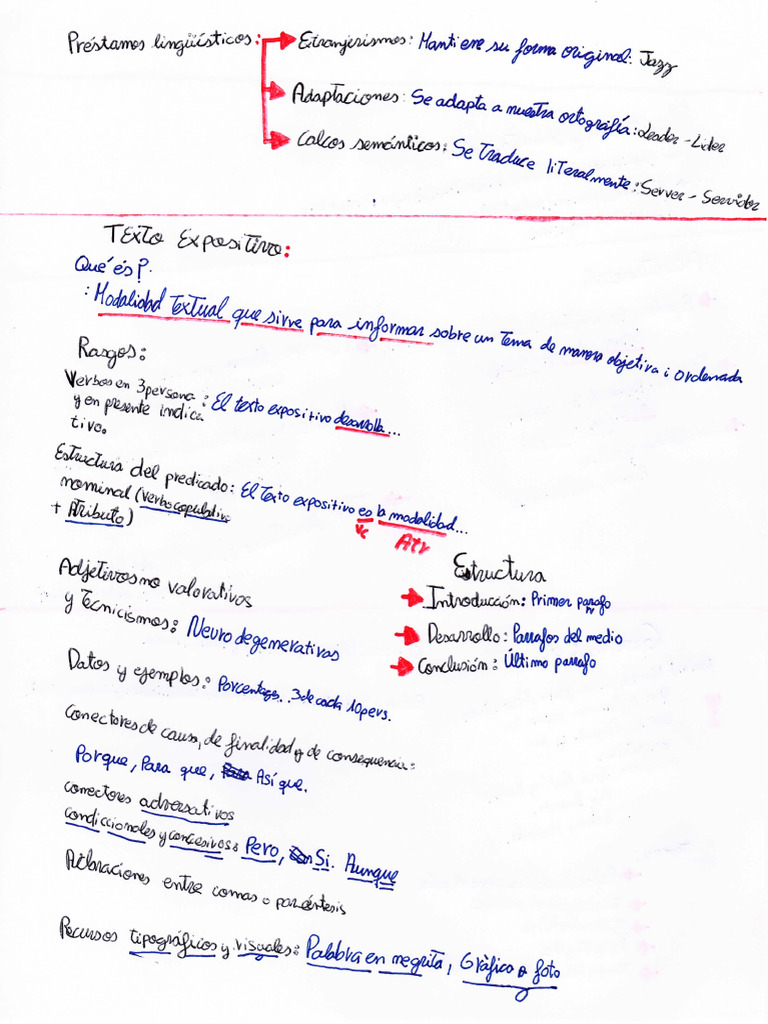 Préstamos lingüísticos: Extranjerismos: Mantiene su forma original: Jazz
Adaptaciones: Se adapta a nuestra ortografía: Leader - Lider
Calcos semánticos: Se traduce literalmente: Server - Servidor
Texto Expositivo:
Qué és?
: Modalidad textual que sirve para informar sobre un tema de manera objetiva i ordenada
Rasgos:
Verbos en 3 persona
y en presente indica
tivo.
: El texto expositivo desarrolla...
Estructura del predicado
nominal (Verbo copulativo
+ Atributo)
: El texto expositivo es la modalidad...
Vc Atr
Adjetivos no valorativos
y Tecnicismos: Neurodegenerativas
Datos y ejemplos: Porcentages.. 3 de cada 10 pers.
Conectores de causa, de finalidad y de consequencia:
Porque, Para que, Así que.
conectores adversativos
condiccionales y concesivos: Pero, Si. Aunque
Aclaraciones entre comas o paréntesis
Recursos tipográficos y visuales: Palabra en negrita, Gràfico o foto
Estructura
Introducción: Primer parrafo
Desarrollo: Parrafos del medio
Conclusión: Último parrafo